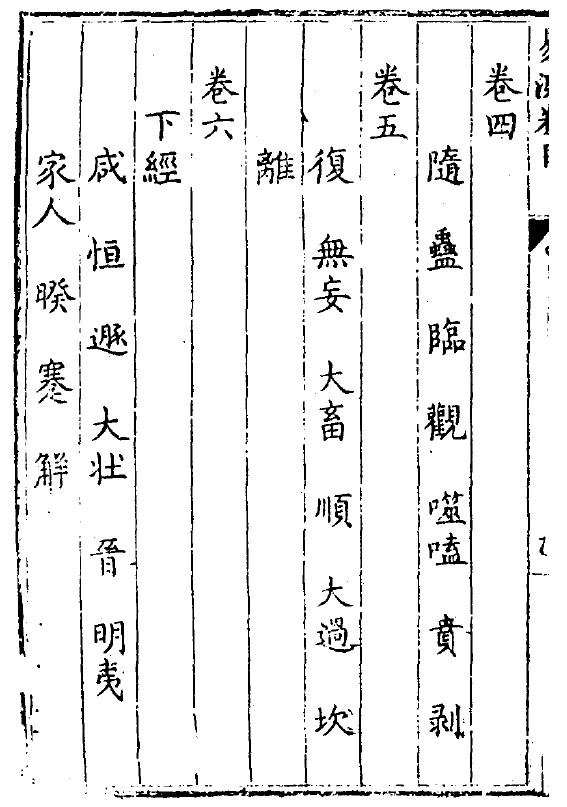 卷四
隨 蠱 臨 觀 噬嗑 賁 剥
卷五
復 無妄 大畜 順 大過 坎
離
卷六
下經
咸 恒 遯 大壯 晉 明夷
家人 睽 蹇 解